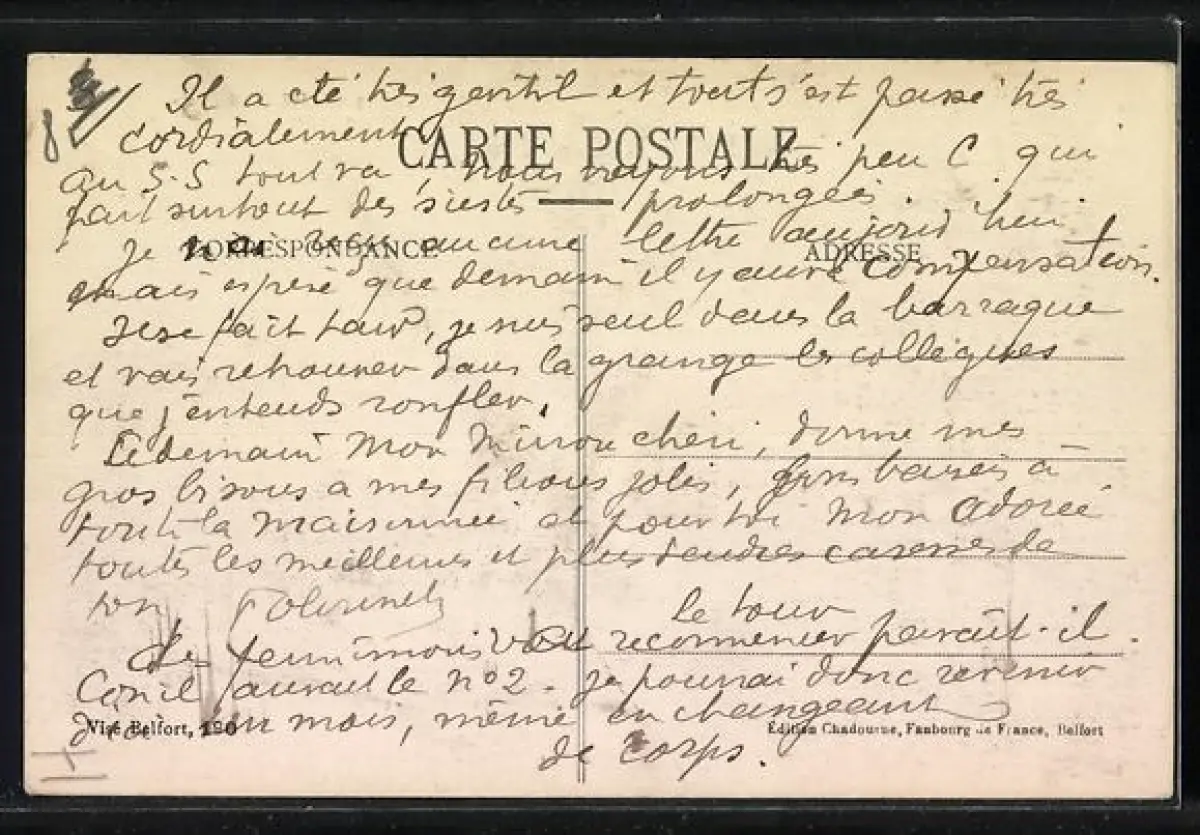 Il a été très gentil et tout s'est passé très
cordialement
CARTE POSTALE
au S.S tout va nous voyons très peu C. qui
fait surtout des siestes prolongées.
CORRESPONDANCE
ADRESSE
Je aucune lettre aujourd'hui
mais espère que demain il y aura compensation.
Il se fait tard, je suis seul dans la barraque
et vais retrouver dans la grange les collègues
que j'entends ronfler.
A demain Mon Minou chéri, donne mes
gros bisous a mes filious jolis, bons baisers à
toute la maisonnée et pour toi Mon adorée
toutes les meilleures et plus tendres caresses de
ton
Le tour
recommencer parait-il.
le n° 2 - je pourrai donc revenir
mois, même en changeant
de corps.
Visé Belfort, 190
Édition Chadourne, Faubourg de France, Belfort